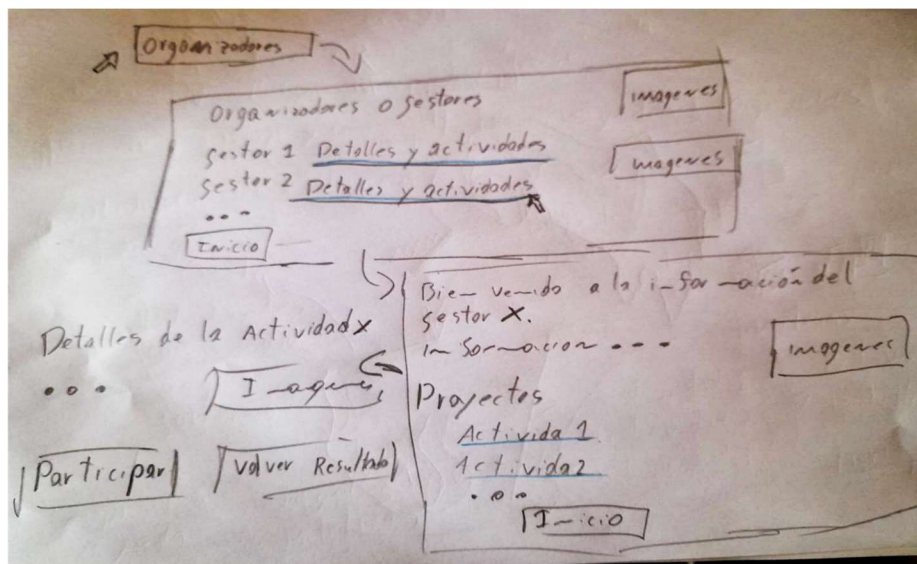 Organizadores
Organizadores o gestores
imagenes
gestor 1 Detalles y actividades
imagenes
gestor 2 Detalles y actividades
...
Inicio
Bienvenido a la información del
gestor X.
Informacion ...
imagenes
Proyectos
Activida 1
Activida 2
...
Inicio
Detalles de la Actividad X
...
Imagenes
Participar
Volver Resultado